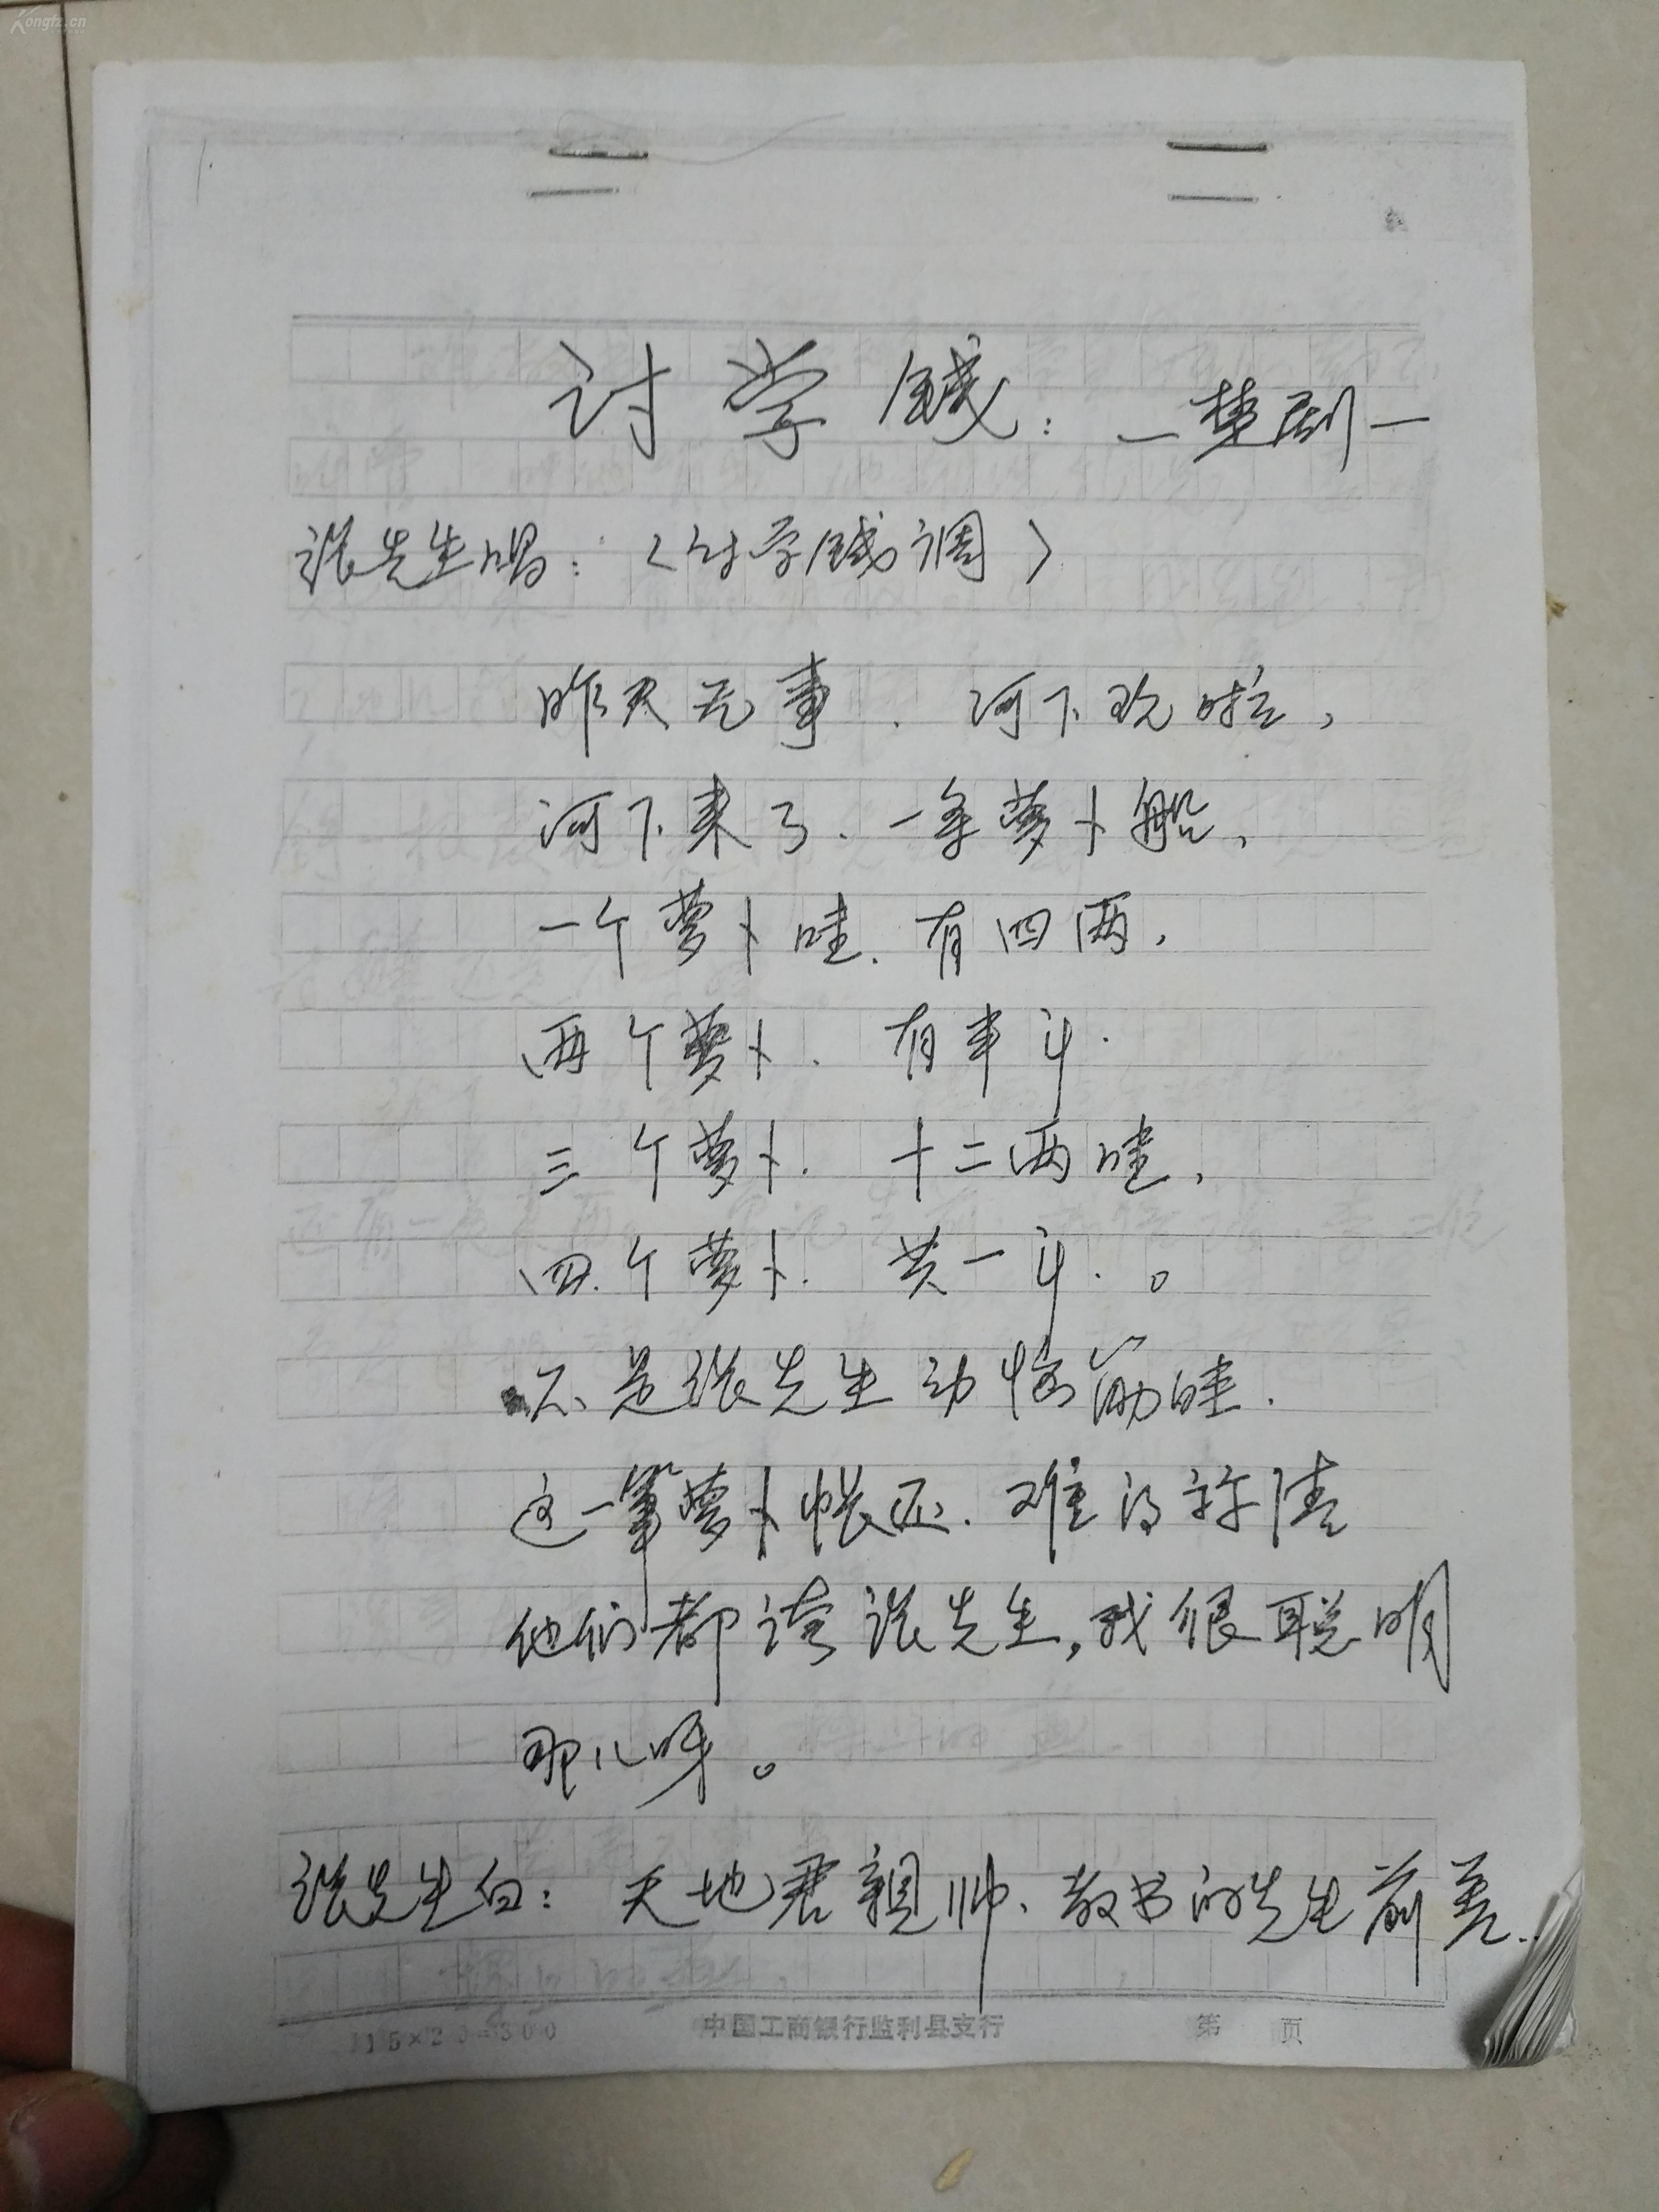 Kongfz.cn
1.
讨学钱：—楚剧—
张先生唱：〈讨学钱调〉
昨天无事．河下玩啦，
河下来了．一条萝卜船，
一个萝卜哇．有四两，
两个萝卜．有半斗．
三个萝卜．十二两哇，
四个萝卜．共一斗．。
不是张先生动悩筋哇．
这一笔萝卜帐还．难得 清
他们都誇张先生，我很聪明
那儿呀。
张先生白：天地君親帅、教书的先生前差．
15×20=300 中国工商银行监利县支行 第 页